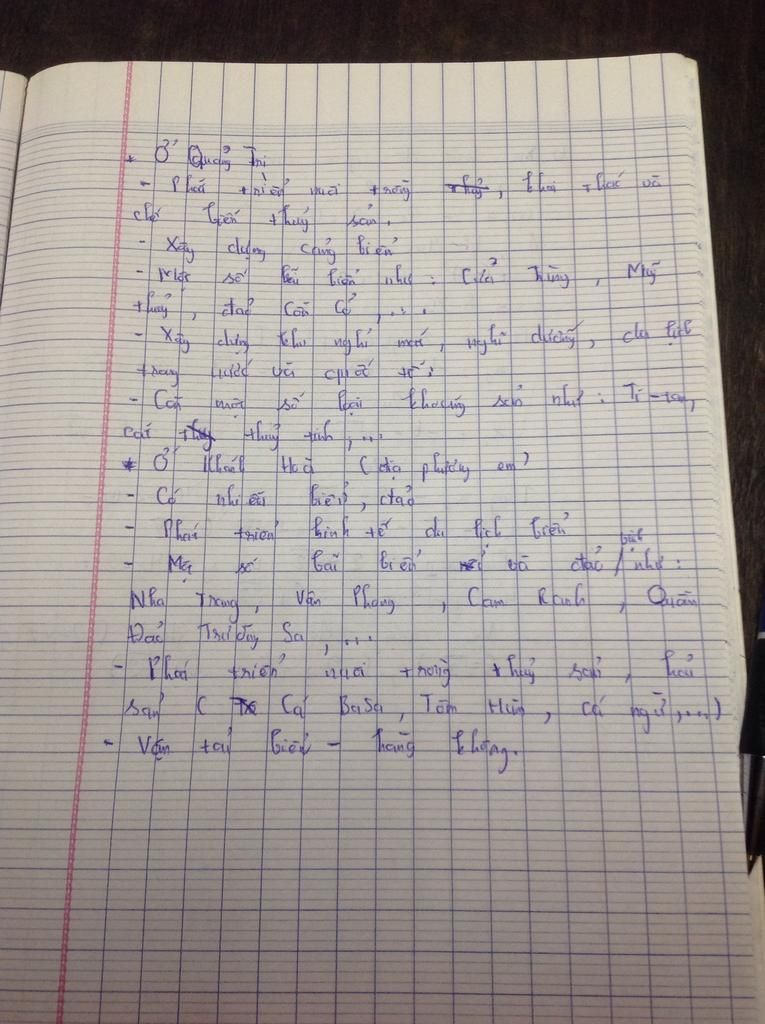 * Ở Quảng Trị
- Phát triển nuôi trồng, khai thác và
chế biến thuỷ sản.
- Xây dựng cảng biển
- Một số bãi biển như : Cửa Tùng, Mỹ
thuỷ, đảo Cồn Cỏ, ...
- Xây dựng khu nghỉ mát, nghĩ dưỡng, du lịch
trong nước và quốc tế.
- Còn một số loại khoáng sản như : Ti-tan,
cát thuỷ tinh, ...
* Ở Khánh Hoà (địa phương em)
- Có nhiều biển, đảo
- Phát triển kinh tế du lịch biển
- Một số bãi biển và đảo như :
Nha Trang, Vân Phong, Cam Ranh, Quần
Đảo Trường Sa, ...
- Phát triển nuôi trồng thuỷ sản, hải
sản ( Cá BaSa, Tôm Hùm, cá ngừ, ...)
- Vận tải biển - hàng không.